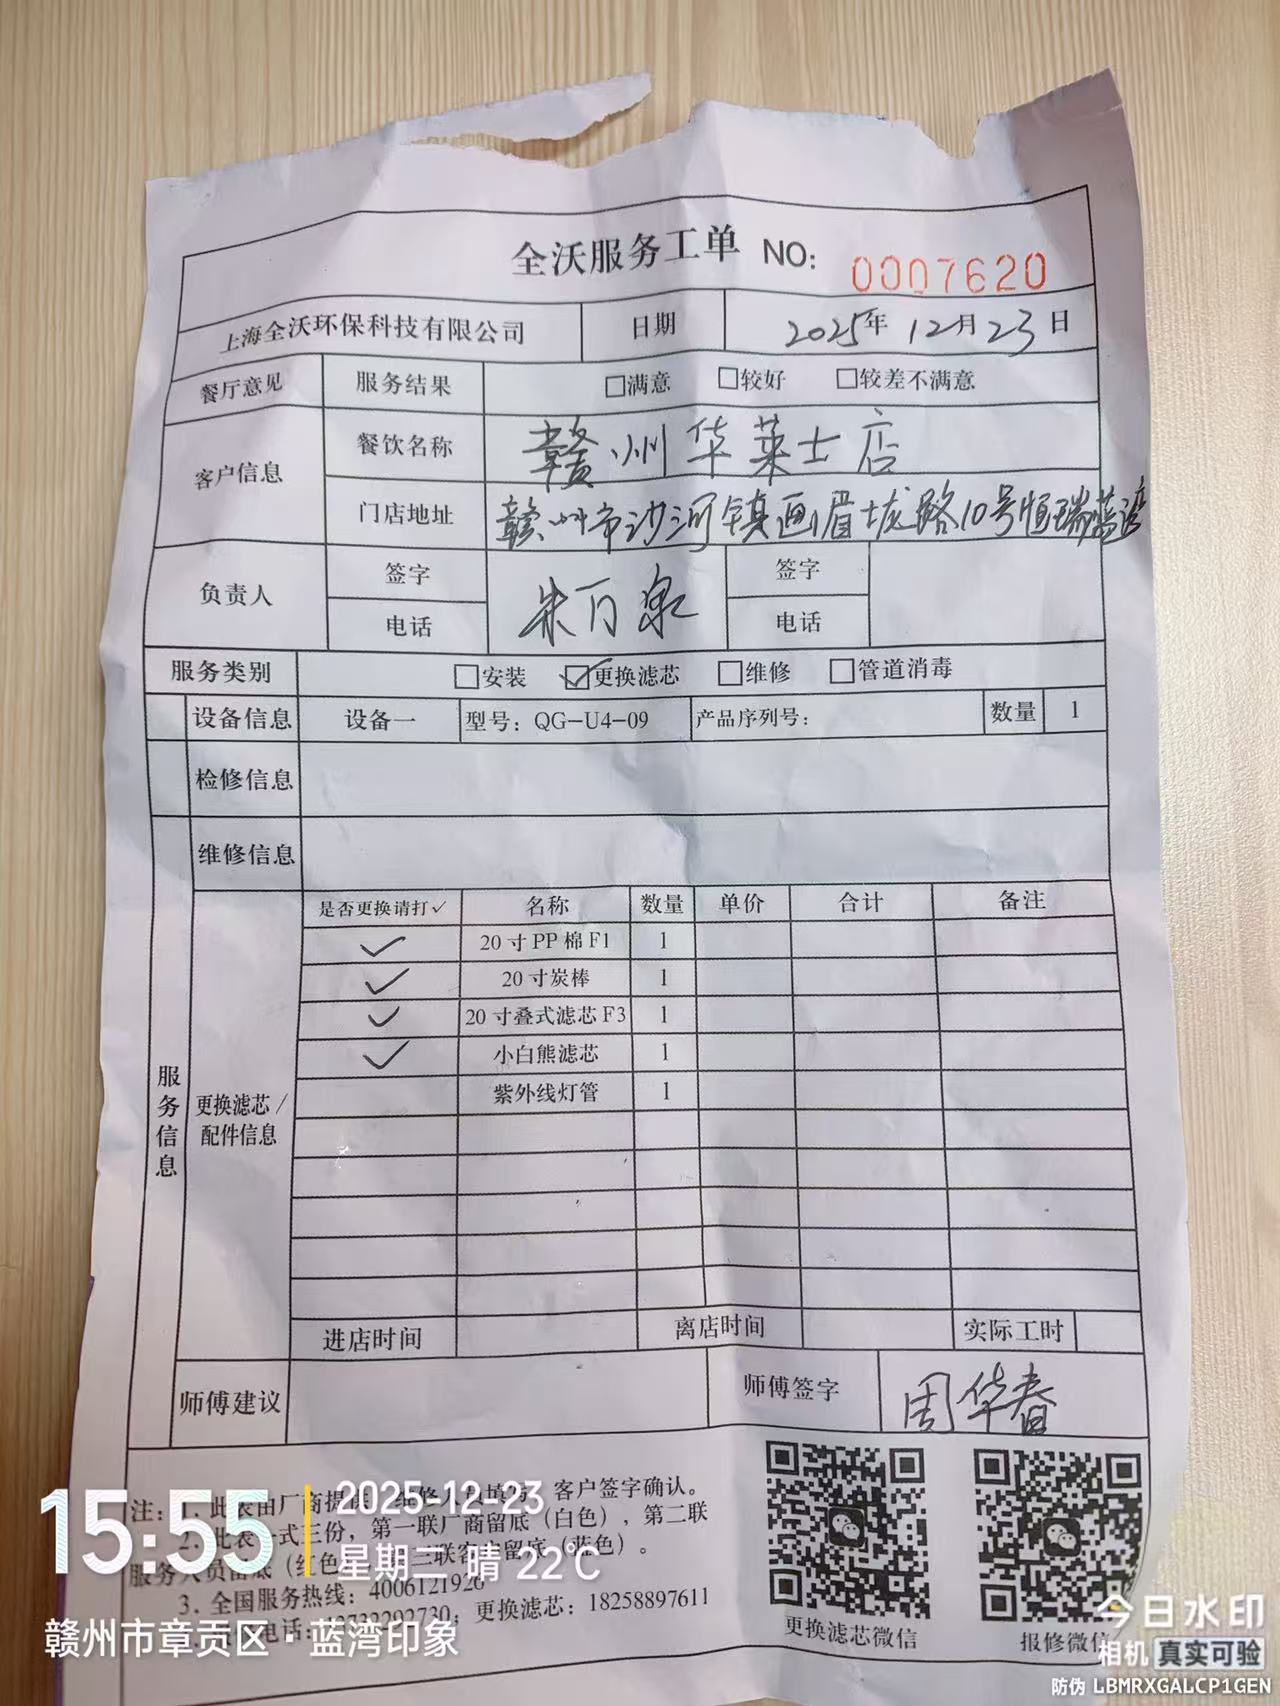 全沃服务工单 NO: 0007620
上海全沃环保科技有限公司 日期 2025年12月23日
餐厅意见 服务结果 □满意 □较好 □较差不满意
客户信息 餐饮名称 赣州华莱士店
门店地址 赣州市沙河镇画眉垅路10号恒瑞蓝湾
负责人 签字 朱百泉 签字
电话 电话
服务类别 □安装 ☑更换滤芯 □维修 □管道消毒
设备信息 设备一 型号：QG-U4-09 产品序列号： 数量 1
检修信息
维修信息
服务信息
更换滤芯／配件信息
是否更换请打✓ 名称 数量 单价 合计 备注
✓ 20寸PP棉F1 1
✓ 20寸炭棒 1
✓ 20寸叠式滤芯F3 1
✓ 小白熊滤芯 1
紫外线灯管 1
进店时间 离店时间 实际工时
师傅建议 师傅签字 周华春
注：1. 此表由厂商提 客户签字确认。
2. 此表一式三份，第一联厂商留底（白色），第二联
服务人员留底（红色 三联客 留底（蓝色）。
3. 全国服务热线：4006121926
电话： 2730；更换滤芯：18258897611
更换滤芯微信 报修微信
15:55 2025-12-23
星期二 晴 22℃
赣州市章贡区·蓝湾印象
今日水印
相机 真实可验
防伪 LBMRXGALCP1GEN